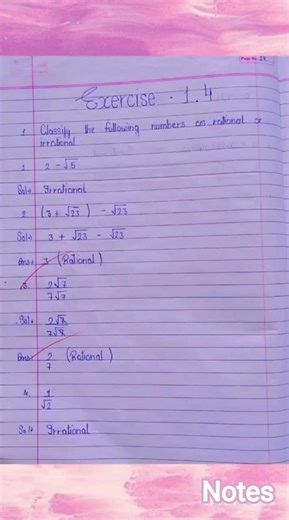 Page No. 24
Exercise - 1.4
1. Classify the following numbers as rational or
irrational
1. 2 - √5
Sol→ Irrational
2. (3 + √23) - √23
Sol→ 3 + √23 - √23
Ans→ 3 (Rational)
3. 2√7
7√7
Sol→ 2√7
7√7
Ans→ 2 (Rational)
7
4. 1
√2
Sol→ Irrational
Notes